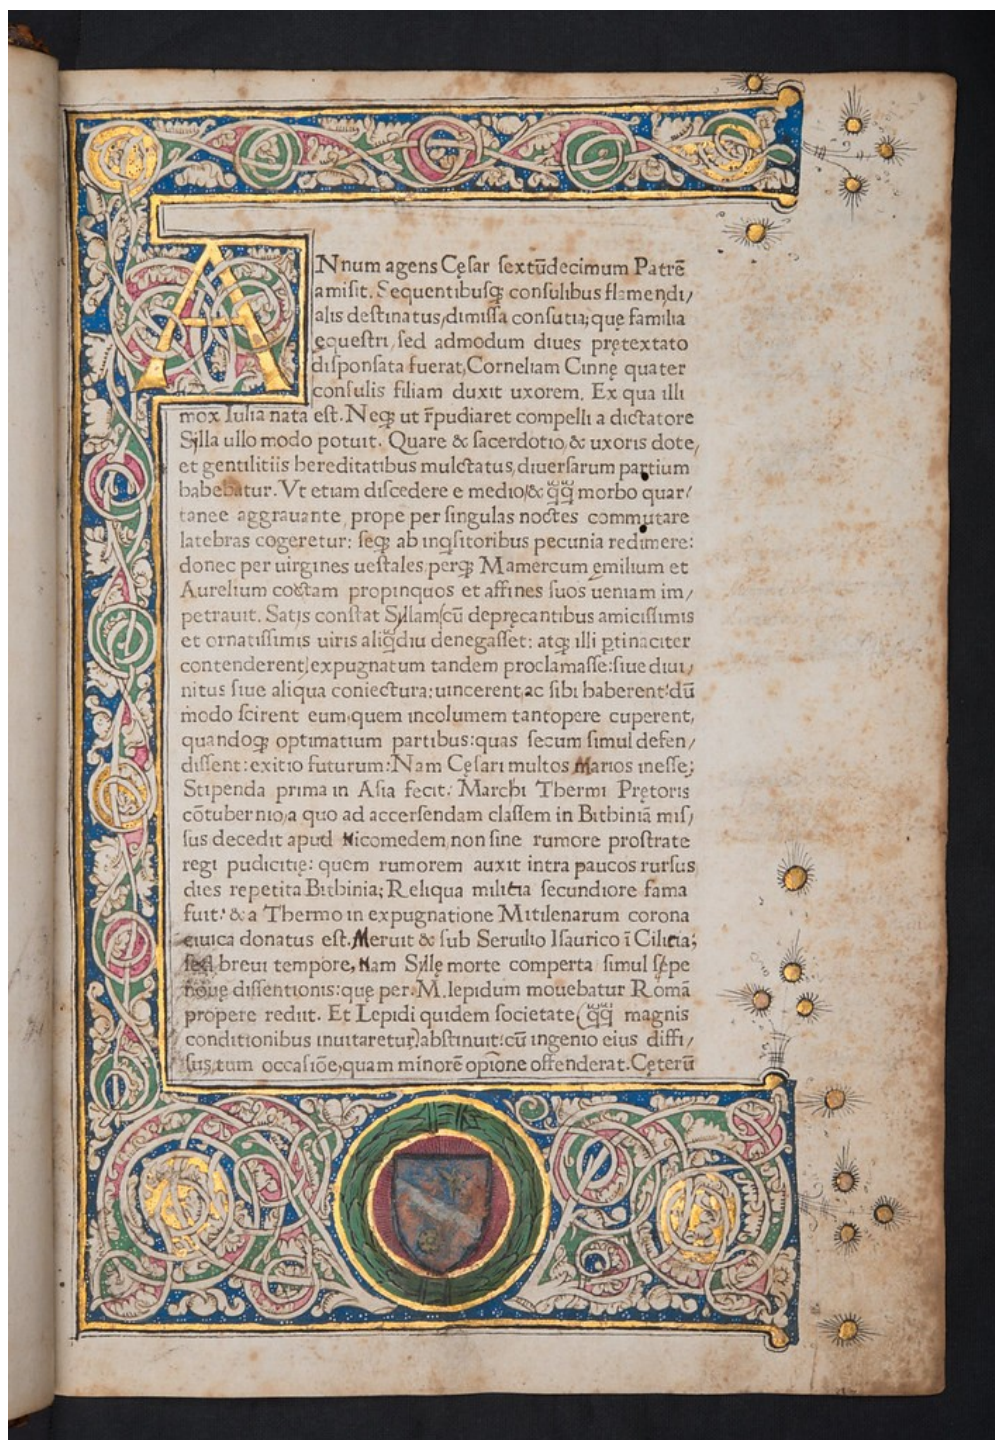 ANnum agens Cęſar ſextūdecimum Patrē
amiſit. Sequentibuſqȝ conſulibus flamendi/
alis deſtinatus,dimiſſa conſutia;quę familia
equeſtri, ſed admodum diues prętextato
diſponſata fuerat,Corneliam Cinnę quater
conſulis filiam duxit uxorem. Ex qua illi
mox Iulia nata eſt. Neqȝ ut r̄pudiaret compelli a dictatore
Silla ullo modo potuit. Quare & ſacerdotio,& uxoris dote,
et gentilitiis hereditatibus mulctatus,diuerſarum partium
habebatur. Vt etiam diſcedere e medio,& q̄q̄ morbo quar/
tanee aggrauante, prope per ſingulas noctes commutare
latebras cogeretur: ſeqȝ ab inqſitoribus pecunia redimere:
donec per uirgines ueſtales,perqȝ Mamercum ęmilium et
Aurelium coctam propinquos et affines ſuos ueniam im/
petrauit. Satis conſtat Syllam(cū depręcantibus amiciſſimis
et ornatiſſimis uiris aliq̄diu denegaſſet: atqȝ illi ꝑtinaciter
contenderent)expugnatum tandem proclamaſſe:ſiue diui/
nitus ſiue aliqua coniectura;uincerent,ac ſibi haberent:dū
modo ſcirent eum,quem incolumem tantopere cuperent,
quandoqȝ optimatium partibus:quas ſecum ſimul defen/
diſſent:exitio futurum:Nam Cęſari multos Marios ineſſe;
Stipenda prima in Aſia fecit: Marchi Thermi Prętoris
cōtubernio,a quo ad accerſendam claſſem in Bithiniā miſ/
ſus decedit apud Nicomedem,non ſine rumore proſtrate
regi pudicitię: quem rumorem auxit intra paucos rurſus
dies repetita Bithinia; Reliqua militia ſecundiore fama
fuit: & a Thermo in expugnatione Mitilenarum corona
ciuica donatus eſt. Meruit & ſub Seruilio Iſaurico ī Cilicia;
ſed breui tempore, Nam Syllę morte comperta ſimul ſpe
nouę diſſentionis:quę per. M. lepidum mouebatur Romā
propere rediit. Et Lepidi quidem ſocietate(q̄q̄ magnis
conditionibus inuitaretur)abſtinuit:cū ingenio eius diffi/
ſus,tum occaſiōe,quam minorē opīone offenderat. Cęterū